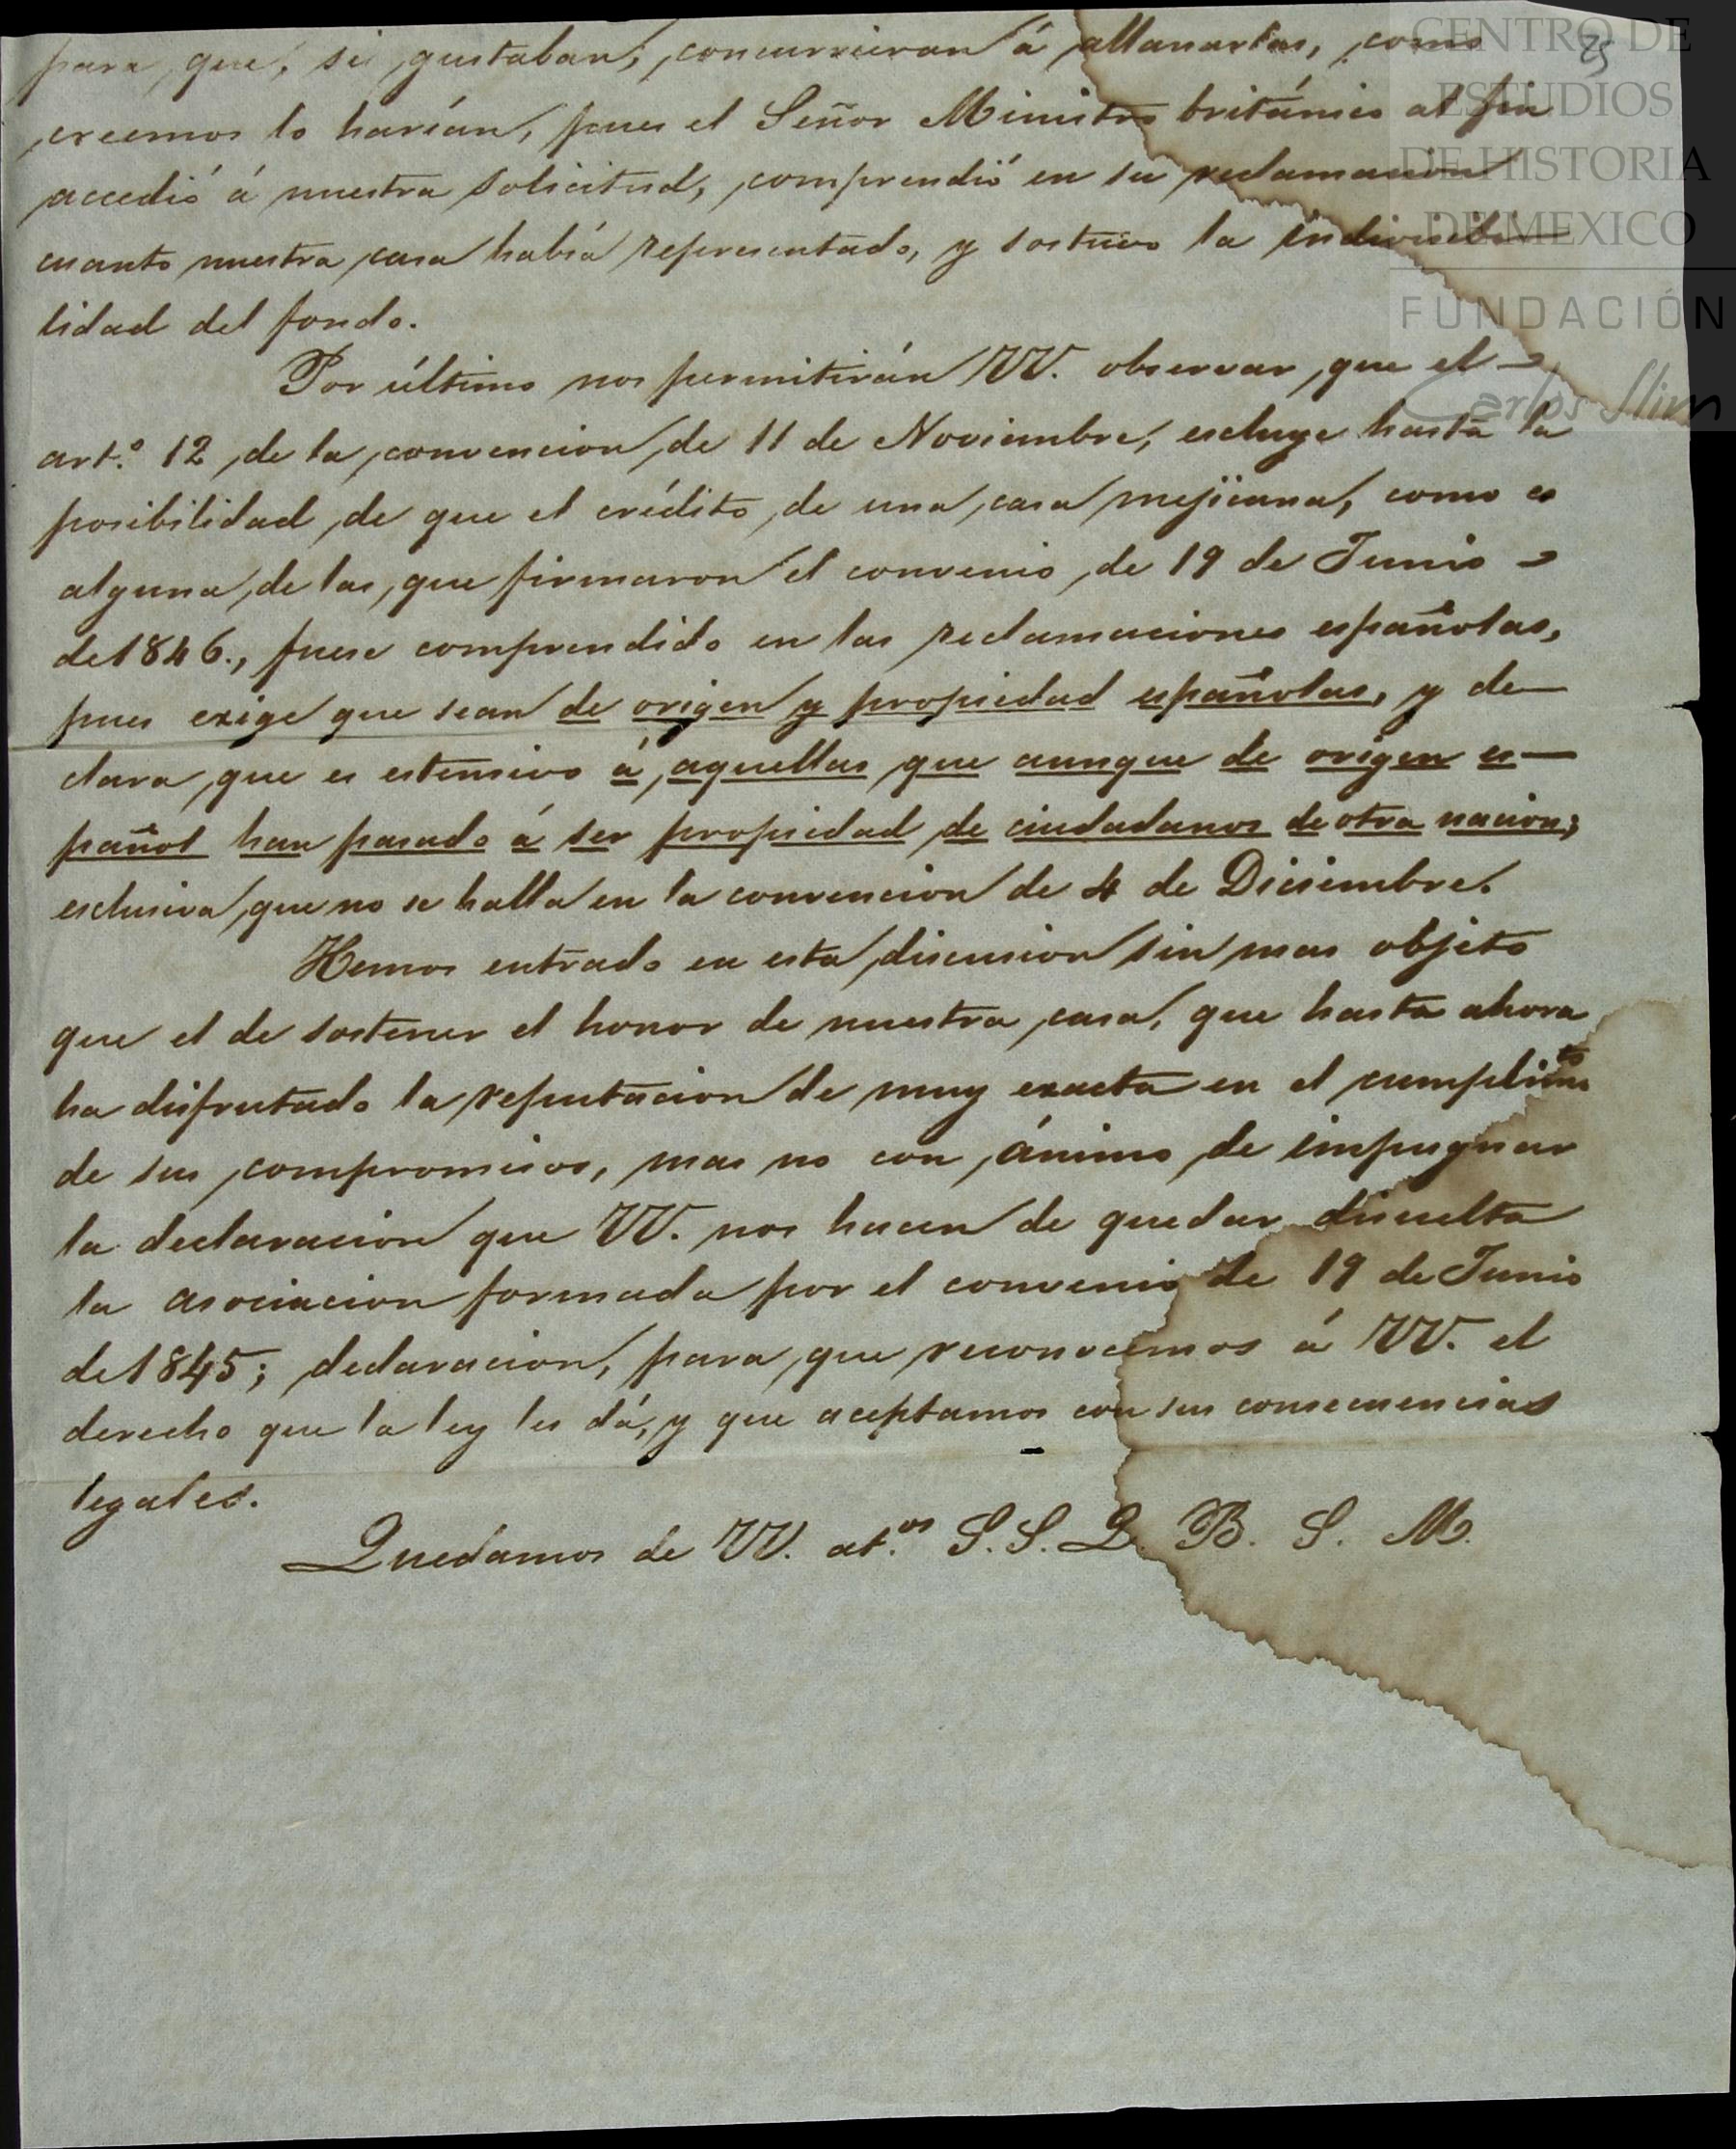 CENTRO DE
ESTUDIOS
DE HISTORIA
DE MEXICO
FUNDACIÓN
Carlos Slim
25
para que, si gustaban, concurrieran á allanarlas, como
creemos lo harían, pues el Señor Ministro británico al fin
accedió á nuestra solicitud, comprendió en su reclamacion
cuanto nuestra casa había representado, y sostuvo la indivisibi-
lidad del fondo.
Por último nos permitirán VV. observar, que el
art.º 12 de la convencion de 11 de Noviembre, escluye hasta la
posibilidad de que el crédito de una casa mejicana, como es
alguna de las que firmaron el convenio de 19 de Junio
de 1846., fuese comprendido en las reclamaciones españolas,
pues exige que sean de origen y propiedad españolas, y de-
clara, que es estensivo á aquellas que aunque de origen es-
pañol han pasado á ser propiedad de ciudadanos de otra nacion;
esclusiva, que no se halla en la convencion de 4 de Diciembre.
Hemos entrado en esta discusion sin mas objeto
que el de sostener el honor de nuestra casa, que hasta ahora
ha disfrutado la reputacion de muy exacta en el cumplimto
de sus compromisos, mas no con ánimo de impugnar
la declaracion que VV. nos hacen de quedar disuelta
la asociacion formada por el convenio de 19 de Junio
de 1845; declaracion, para que reconocemos á VV. el
derecho que la ley les dá, y que aceptamos con sus consecuencias
legales.
Quedamos de VV. at.os S. S. Q. B. S. M.